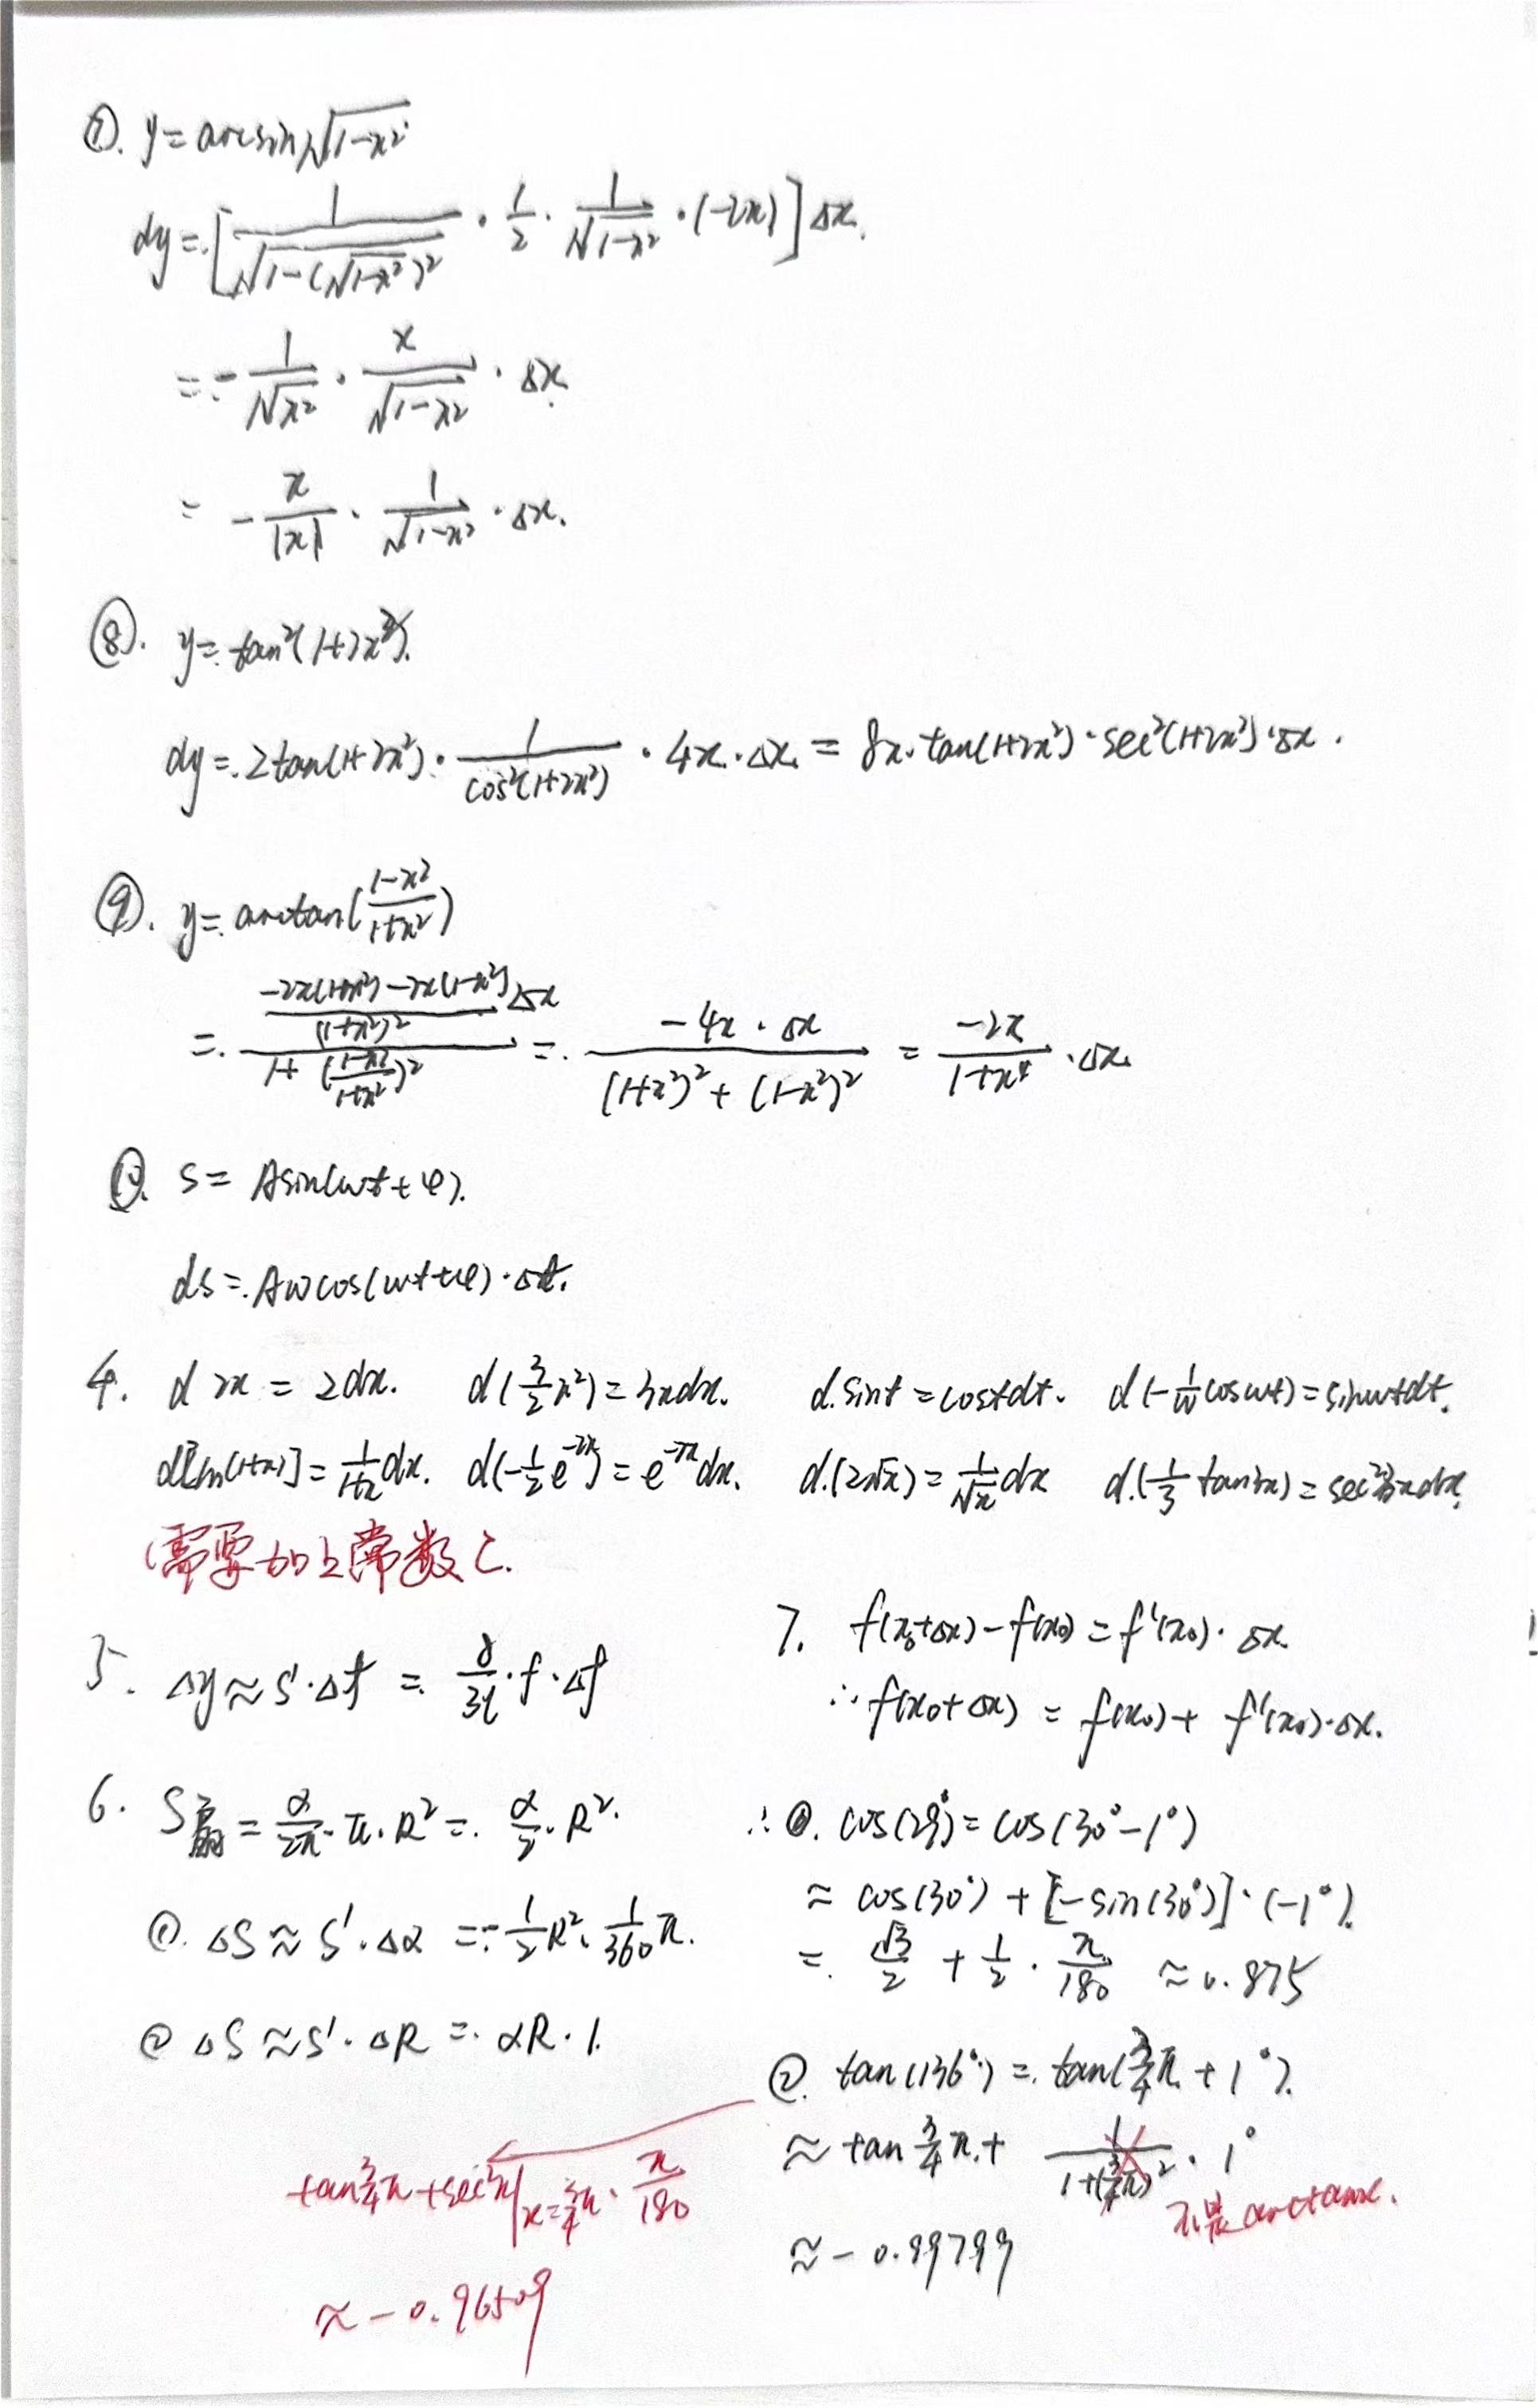 ⑦. y = arcsin√(1-x²)
dy = [1/√(1-(√(1-x²))²) · 1/2 · 1/√(1-x²) · (-2x)] Δx.
= - 1/√x² · x/√(1-x²) · Δx.
= - x/|x| · 1/√(1-x²) · Δx.
⑧. y = tan²(1+2x²).
dy = 2tan(1+2x²) · 1/cos²(1+2x²) · 4x · Δx = 8x · tan(1+2x²) · sec²(1+2x²) · Δx.
⑨. y = arctan((1-x²)/(1+x²))
= ((-2x(1+x²)-2x(1-x²))/(1+x²)² Δx)/(1+((1-x²)/(1+x²))²) = (-4x · Δx)/((1+x²)²+(1-x²)²) = -2x/(1+x⁴) · Δx.
⑩. s = Asin(wt+φ).
ds = Awcos(wt+φ) · Δt.
4. d 2x = 2dx. d(3/2 x²) = 3xdx. d.sint = costdt. d(-1/w coswt) = sinwtdt.
d[ln(1+x)] = 1/(1+x) dx. d(-1/2 e^(-2x)) = e^(-2x)dx. d.(2√x) = 1/√x dx d.(1/3 tan3x) = sec²3xdx.
(需要加上常数C.
5. Δy ≈ s'·Δf = 8/3l · f · Δf
6. S扇 = α/2π · π · R² = α/2 · R².
①. ΔS ≈ S'·Δα = -1/2 R² · 1/360 π.
② ΔS ≈ S'·ΔR = αR · 1.
7. f(x₀+Δx) - f(x₀) = f'(x₀) · Δx.
∴ f(x₀+Δx) = f(x₀) + f'(x₀)·Δx.
∴ ①. cos(29°) = cos(30°-1°)
≈ cos(30°) + [-sin(30°)]·(-1°).
= √3/2 + 1/2 · π/180 ≈ 0.875
②. tan(136°) = tan(3/4π + 1°).
≈ tan 3/4π + 1/(1+(3/4π)²) · 1°
不是arctanx.
≈ -0.99799
tan3/4π + sec²x|x=3/4π · π/180
≈ -0.96509